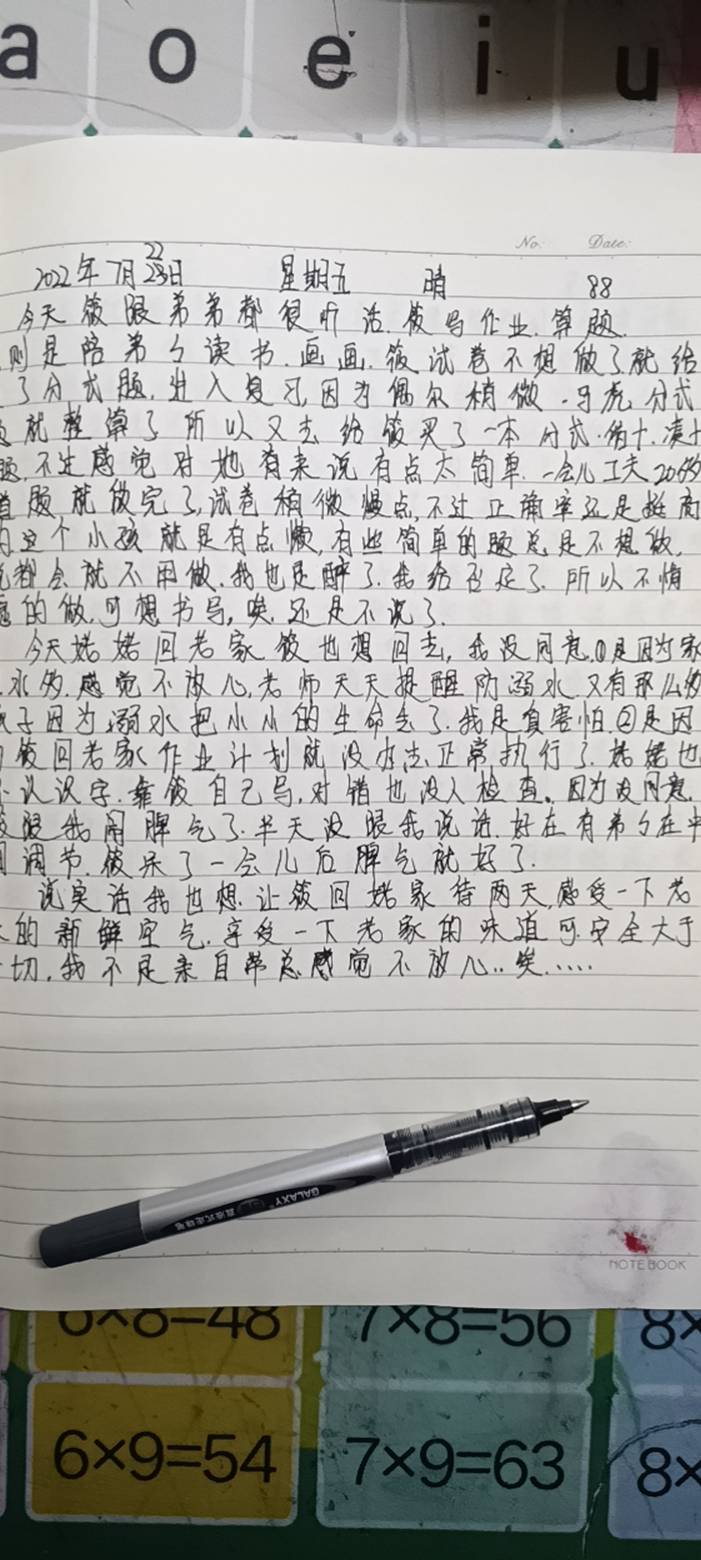 a o e i u
No: Date:
22
2022年7月23日 星期五 晴 88
今天筱跟弟弟都很听话.筱写作业.算题.
则是陪弟弟读书.画画.筱试卷不想做了就给
了分式题,进入复习,因为偶尔稍微.马虎分式
就整算了所以又去给筱买了一本分式.
题.不过感觉对她有来说有点太简单.一会儿工夫20多
道题就做完了,试卷稍微慢点,不过正确率还是挺高
这个小孩就是有点懒,有些简单的题总是不想做,
说都会就不用做.我也是醉了.我给否定了.所以不情
愿的做.可想书写,唉.还是不说了.
今天姥姥回老家筱也想回去,我没同意.①是因为家
水多.感觉不放心,老师天天提醒防溺水.又有那么多
孩子因为溺水把小小的生命丢了.我是真害怕.②是因
筱回老家作业计划就没办法正常执行了.姥姥也
不认识字.靠筱自己写,对错也没人检查。因为没同意.
筱跟我闹脾气了.半天没跟我说话.好在有弟弟在中
间调节.筱呆了一会儿后脾气就好了.
说实话我也想让筱回姥家待两天,感受一下老
的新鲜空气.享受一下老家的味道可.安全大于
一切.我不是亲自带总感觉不放心..唉.....
GALAXY
直液式走珠笔
NOTEBOOK
6×8=48 7×8=56 8×
6×9=54 7×9=63 8×